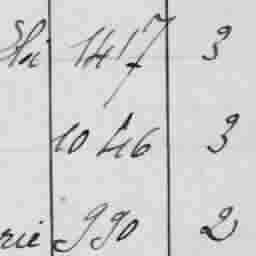 Eloi 1417 3
1046 3
rie 990 2